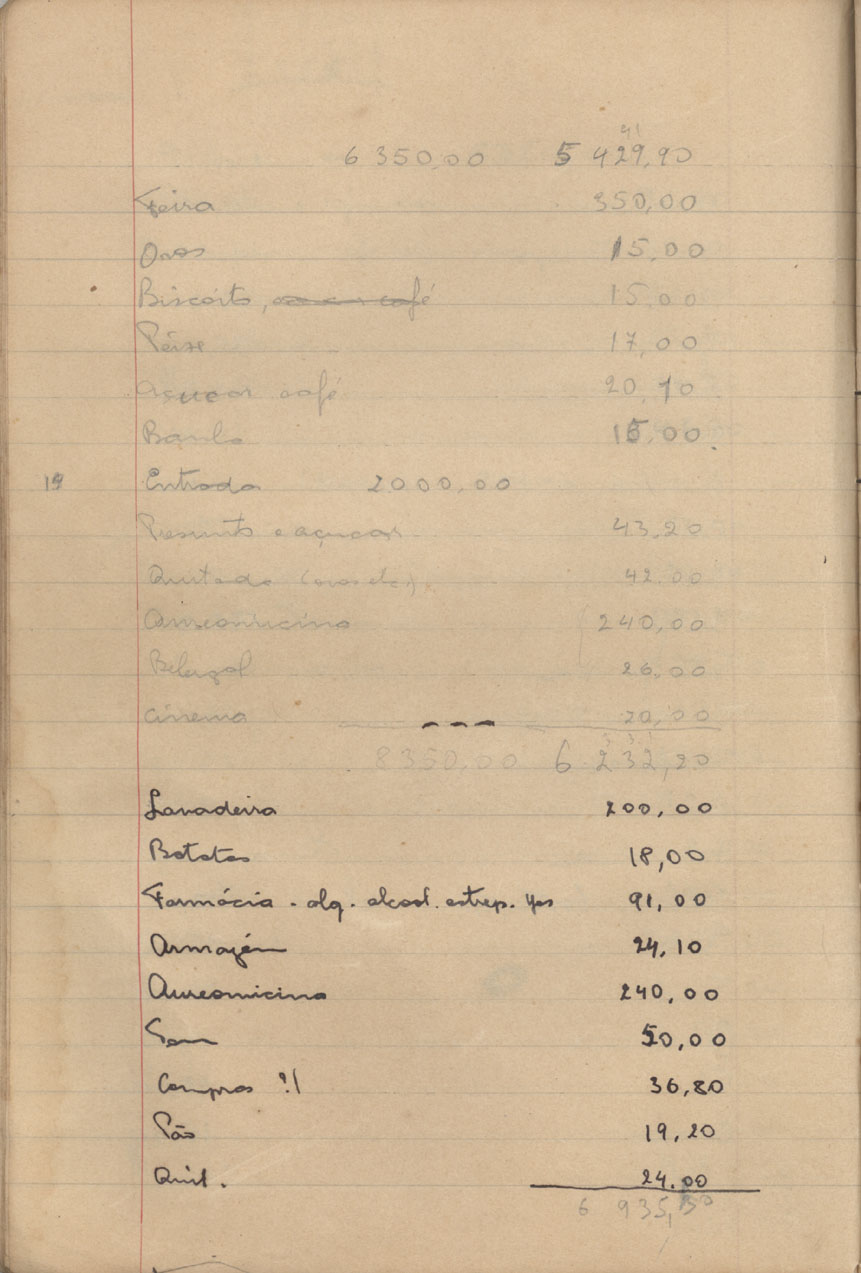 41
6 350,00 5 429,90
Feira 350,00
Ovos 15,00
Biscoito, café 15,00
Peixe 17,00
Açucar café 20,10
15,00
19 Entrada 2000,00
Presunto e açucar 43,20
Quitada (ovos etc). 42.00
Aureomicina 240,00
26,00
Cinema 20,00
8350,00 6 232,20
Lavadeira 200,00
Batatas 18,00
Farmácia - alg. alcool. estrep. 91,00
Armazém 24,10
Aureomicina 240,00
50,00
Compras ?! 36,80
Pão 19,20
Quit. 24.00
6 935,30